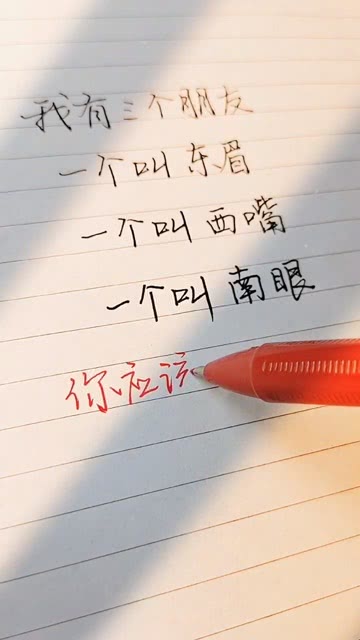 我有三个朋友
一个叫东眉
一个叫西嘴
一个叫南眼
你应该